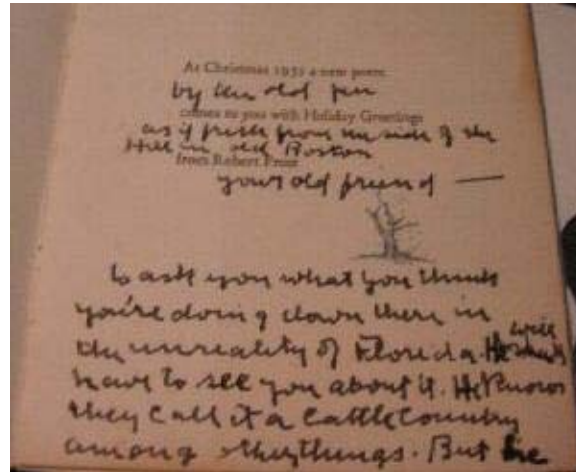 At Christmas 1951 a new poem
by the old pen
comes to you with Holiday Greetings
as if fresh from the side of the
Hill in old Boston
from Robert Frost
your old friend —
to ask you what you think
you're doing down there in
the unreality of Florida. He will
have to see you about it. He knows
they call it a cattle country
among other things. But he